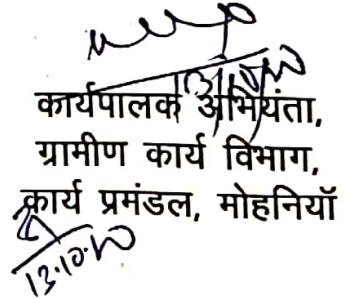 कार्यपालक अभियंता,
ग्रामीण कार्य विभाग,
कार्य प्रमंडल, मोहनियाँ
13.10.20